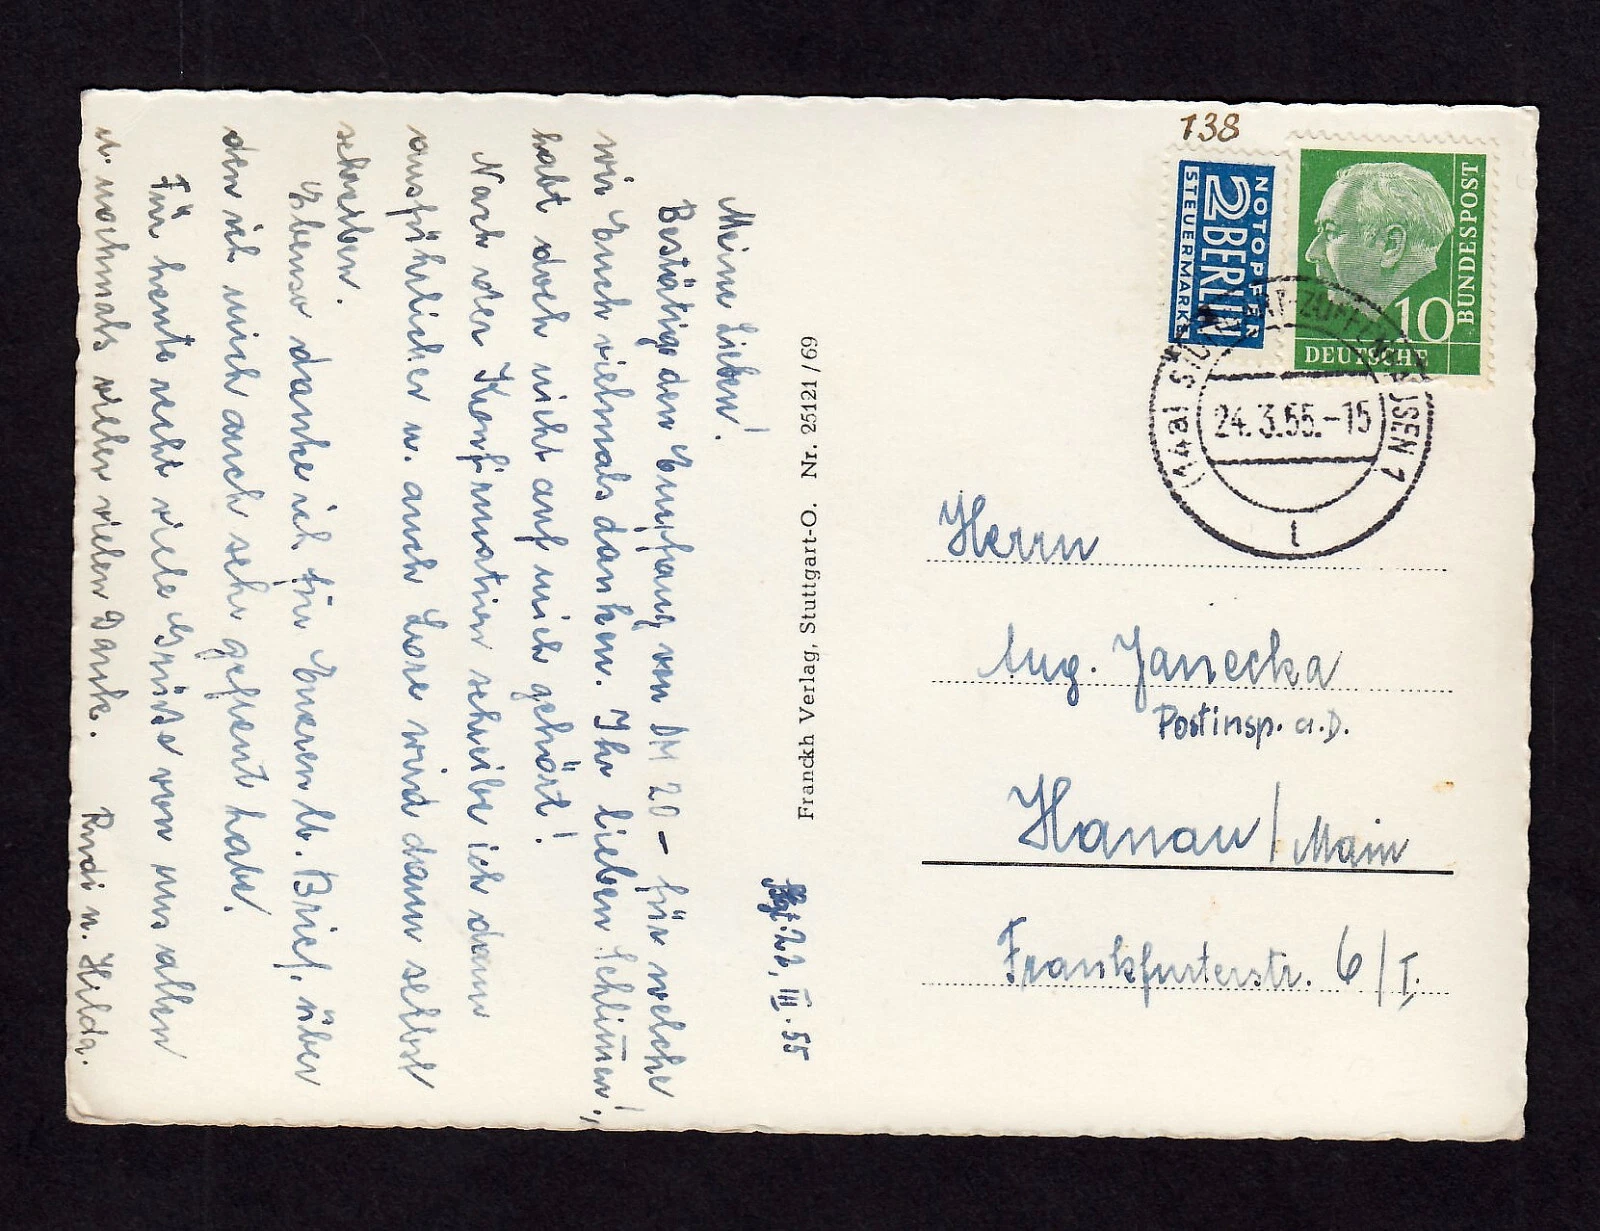 138
NOTOPFER
2 BERLIN
STEUERMARKE
BUNDESPOST
10
DEUTSCHE
(14a) STUTTGART-ZUFFENHAUSEN 1
24.3.55.-15
t
Herrn
Aug. Janecka
Postinsp. a.D.
Hanau / Main
Frankfurterstr. 6/I.
Franckh Verlag, Stuttgart-O. Nr. 25121/69
23. III. 55
Meine Lieben!
Bestätige den Empfang von DM 20 – für welche
wir Euch vielmals danken. Ihr lieben Schlimen,!
habt doch nicht auf mich gehört!
Nach der Konfirmation schreibe ich dann
ausführlicher u. auch Lore wird dann selbst
schreiben.
Ebenso danke ich für Eueren lb. Brief, über
den ich mich auch sehr gefreut habe.
Für heute recht viele Grüsse von uns allen
u. nochmals vielen vielen Dank. Rudi u. Hilda.